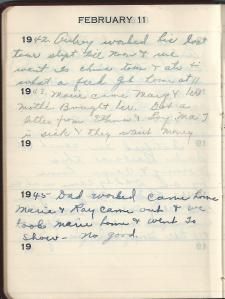 FEBRUARY 11
1942. worked his last
tour slept till noon & we
went to town & ate &
what a feed got home at 11
1943 Marie came Mary & Bill's
mother Brought her. Got a
letter from & Guy Ma I
is sick & they want money
19
1945 Dad worked came home
Marie & Ray came out & we
took Marie home & went to
show - no good.
19